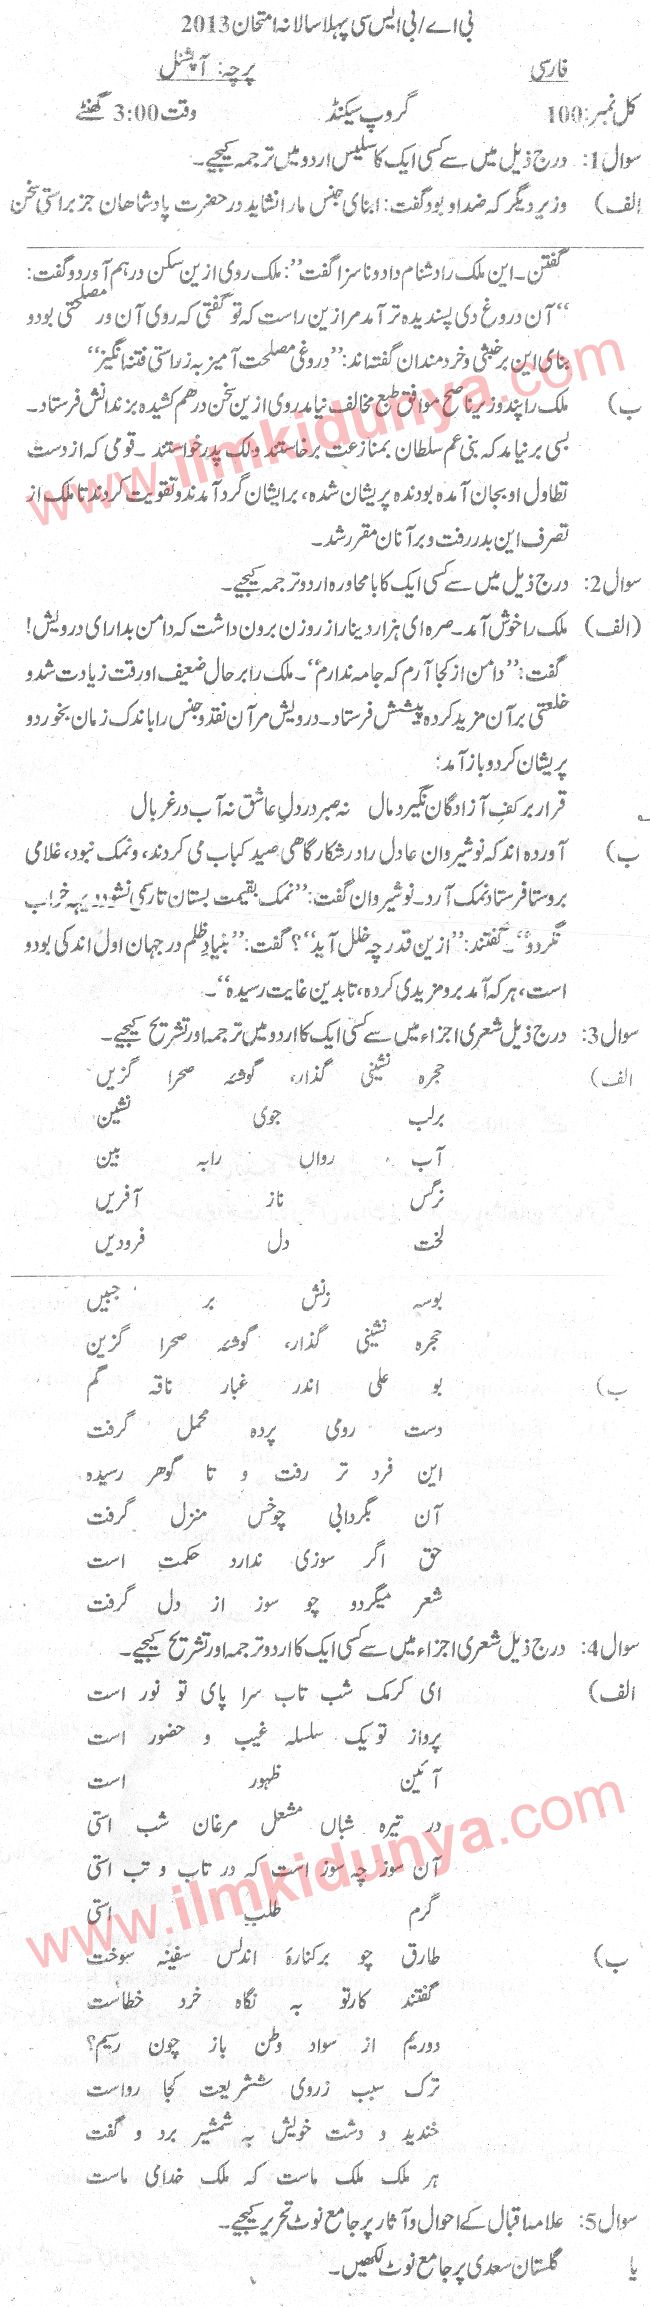 بی اے/بی ایس سی پہلا سالانہ امتحان 2013
فارسی پرچہ: آپشنل
کل نمبر:100 گروپ سیکنڈ وقت 3:00 گھنٹے
سوال 1: درج ذیل میں سے کسی ایک کا سلیس اردو میں ترجمہ کیجیے۔
الف) وزیر دیگر کہ ضد او بود گفت: ابنای جنس مارا نشاید در حضرت پادشاھان جز براستی سخن
گفتن۔ این ملک را دشنام داد و ناسزا گفت”: ملک روی ازین سکن درہم آورد و گفت:
“آن دروغ وی پسندیدہ تر آمد مرا زین راست کہ تو گفتی کہ روی آن ور مصلحتی بود و
بنای این بر خبثی و خردمندان گفتہ اند:“دروغی مصلحت آمیز بہ ز راستی فتنہ انگیز”
ب) ملک را پند وزیر ناصح موافق طبع مخالف نیامد روی ازین سخن درھم کشیدہ بزندانش فرستاد۔
بسی برنیامد کہ بنی عم سلطان بمنازعت برخاستند و ملک پدر خواستند ۔ قومی کہ از دست
تطاول او بجان آمدہ بودندہ پریشان شدہ، برایشان گرد آمدند و تقویت کردند تا ملک از
تصرف این بدر رفت و بر آنان مقرر شد۔
سوال 2: درج ذیل میں سے کسی ایک کا با محاورہ اردو ترجمہ کیجیے۔
(الف) ملک را خوش آمد۔ صرہ ای ھزار دینار از روزن برون داشت کہ دامن بدار ای درویش!
گفت:”دامن از کجا آرم کہ جامہ ندارم“۔ ملک را بر حال ضعیف او رقت زیادت شد و
خلعتی بر آن مزید کردہ پیشش فرستاد۔ درویش مر آن نقد و جنس را باندک زمان بخورد و
پریشان کرد و باز آمد:
قرار بر کف آزادگان نگیرد مال نہ صبر در دلِ عاشق نہ آب در غربال
ب) آوردہ اند کہ نوشیروان عادل را در شکار گاھی صید کباب می کردند، و نمک نبود، غلامی
بروستا فرستاد نمک آرد۔ نوشیروان گفت:”نمک بقیمت بستان تا رسمی نشود و دیہہ خراب
نگردو“۔ گفتند:”ازین قدر چہ خلل آید“؟ گفت:”بنیادِ ظلم در جہان اول اندکی بود و
است، ہر کہ آمد برو مزیدی کردہ، تا بدین غایت رسیدہ“۔
سوال 3: درج ذیل شعری اجزاء میں سے کسی ایک کا اردو میں ترجمہ اور تشریح کیجیے۔
الف) حجرہ نشینی گذار، گوشئہ صحرا گزیں
برلب جوی نشین
آب رواں رابہ بین
نرگس ناز آفریں
لخت دل فرودیں
بوسہ زنش بر جبیں
حجرہ نشینی گذار، گوشئہ صحرا گزین
ب) بو علی اندر غبار ناقہ گم
دست رومی پردہ محمل گرفت
این فرد تر رفت و تا گوھر رسیدہ
آن بگردابی چوخس منزل گرفت
حق اگر سوزی ندارد حکمت است
شعر میگردو چو سوز از دل گرفت
سوال 4: درج ذیل شعری اجزاء میں سے کسی ایک کا اردو ترجمہ اور تشریح کیجیے۔
الف) ای کرمک شب تاب سرا پای تو نور است
پرواز تو یک سلسلہ غیب و حضور است
آئین ظہور است
در تیرہ شباں مشعل مرغان شب استی
آن سوز چہ سوز است کہ در تاب و تب استی
گرم طلب استی
ب) طارق چو برکنارۂ اندلس سفینہ سوخت
گفتند کارتو بہ نگاہ خرد خطاست
دوریم از سواد وطن باز چون رسیم؟
ترک سبب زروی ششریعت کجا رواست
خندید و دشت خویش بہ شمشیر برد و گفت
ہر ملک ملک ماست کہ ملک خدامی ماست
سوال 5: علامہ اقبال کے احوال و آثار پر جامع نوٹ تحریر کیجیے۔
یا گلستان سعدی پر جامع نوٹ لکھیں۔
www.ilmkidunya.com
www.ilmkidunya.com